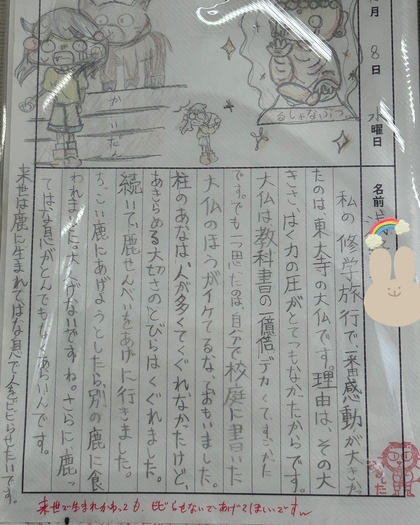 月8日
水曜日
名前
私の修学旅行で一番感動が大きか
たのは、東大寺の大仏です。理由は、その大
きさ、はく力の圧がとてもなかったからです。
大仏は教科書の一億倍デカくて、すごかた
です。でも一つ思たのは、自分で校庭に書いた
大仏のほうがイケてるな、とおもいました。
柱のあなは、人が多くてくぐれなかたけど、
あきらめる大切さのとびらはくぐれました。
続いて、鹿せんべいをあげに行きました。
ちっこい鹿にあげようとしたら、別の鹿に食
われました。大人げないですね。さらに、鹿っ
てはな息がとんでもなくあらいんです。
来世は鹿に生まれてはな息で人をビビらせたいです。
かいだん
るしゃなぶつ
来世で生まれかわっても、ビビらせないであげてほしいです